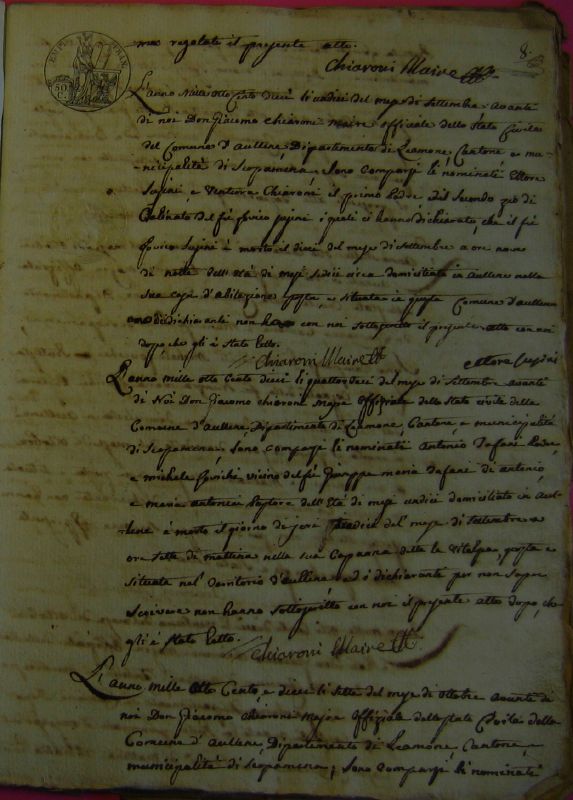 8.
EMPIRE FRAN
50 C.
me regolate il presente atto.
Chiaroni Maire
L'anno Mille otto Cento dieci li undici del mese di Settembre avante
di noi Don Giacomo Chiaroni Maire offiziale dello Stato Civile
del Comune d'Aullene, Dipartimento di Liamone, Cantone, e mu-
nicipalità di Scopamena, Sono Comparsi li nominati Ettore
e Ventura Chiaroni il primo Padre ed il Secondo zio di
del fù i quali ci hanno dichiarato, che il fù
è morto il dieci del mese di Settembre a ore nove
di notte dell'Età di mesi Sedici circa domiciliato in Aullene nella
Sua casa d'abitazione posta, e situata in questa Comune d'aullene
dichiaranti non con noi Sottoscritto il presente atto con noi
dopo, che gli è Stato letto.
Chiaroni Maire Ettore
L'anno mille otto Cento dieci li quattordeci del mese di Settembre avante
di Noi Don Giacomo Chiaroni Maire Offiziale dello Stato civile della
Comune d'Aullene, Dipartimento di Liamone, Cantone, e municipalità
di Scopamena, Sono comparsi li nominati Antonio Padre,
e michele vicino del fù Giuseppe maria di antonio,
e maria antonia dell'Età di mesi undici domiciliato in Aul-
lene è morto il giorno di jeri tredici del mese di Settembre a
ore Sette di mattina nella sua Capanna detta posta e
situata nel territorio d'Aullene ed i dichiaranti per non Saper
Scrivere non hanno Sottoscritto con noi il presente atto dopo, che
gli è Stato letto.
Chiaroni Maire
L'anno mille otto Cento, e dieci li Sette del mese di Ottobre avante di
noi Don Giacomo Chiaroni Maire Offiziale dello Stato Civile della
Comune d'Aullene, Dipartimento di Liamone, Cantone, e
municipalità di Scopamena; Sono Comparsi li nominati